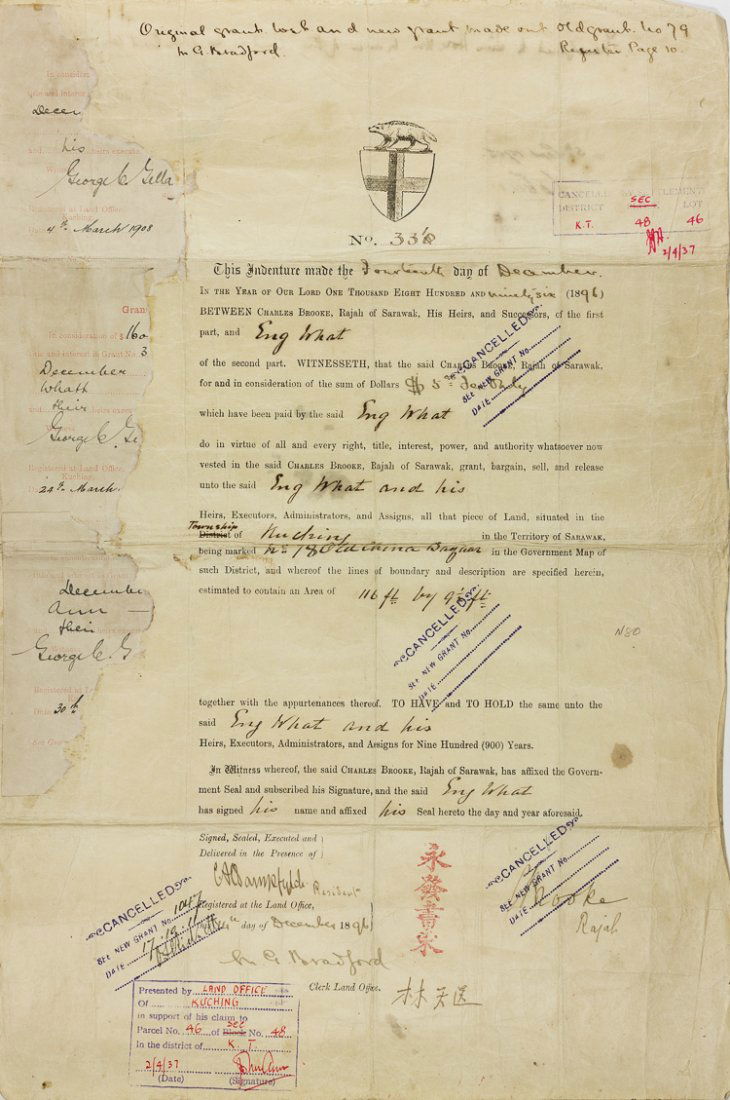 Original grant lost and new grant made out Old grant No 79
M G Bradford. Register Page 10.
In consider
title and interest
Decem
and his heirs execute
George C Gilla
Registered at Land Office,
Kuching
4th March 1908
CANCELLED SETTLEMENT
DISTRICT SEC LOT
K.T. 48 46
2/4/37
No. 338
This Indenture made the Fourteenth day of December.
IN THE YEAR OF OUR LORD ONE THOUSAND EIGHT HUNDRED AND ninety six (1896)
BETWEEN CHARLES BROOKE, Rajah of Sarawak, His Heirs, and Successors, of the first
part, and Eng What
of the second part. WITNESSETH, that the said CHARLES BROOKE, Rajah of Sarawak,
for and in consideration of the sum of Dollars $ 5
which have been paid by the said Eng What
do in virtue of all and every right, title, interest, power, and authority whatsoever now
vested in the said CHARLES BROOKE, Rajah of Sarawak, grant, bargain, sell, and release
unto the said Eng What and his
Heirs, Executors, Administrators, and Assigns, all that piece of Land, situated in the
Township
District of Kuching in the Territory of SARAWAK,
being marked No 78 Old China Bazaar in the Government Map of
such District, and whereof the lines of boundary and description are specified herein,
estimated to contain an Area of 116 ft by 9½ ft
N80
together with the appurtenances thereof. TO HAVE and TO HOLD the same unto the
said Eng What and his
Heirs, Executors, Administrators, and Assigns for Nine Hundred (900) Years.
In Witness whereof, the said CHARLES BROOKE, Rajah of Sarawak, has affixed the Govern-
ment Seal and subscribed his Signature, and the said Eng What
has signed his name and affixed his Seal hereto the day and year aforesaid.
Signed, Sealed, Executed and
Delivered in the Presence of
C A Bampfylde Resident
Registered at the Land Office,
day of December 1896
M G Bradford
Clerk Land Office.
永發書

Brooke
Rajah
CANCELLED
SEE NEW GRANT No.
DATE
CANCELLED
SEE NEW GRANT No.
DATE
CANCELLED
SEE NEW GRANT No.
DATE
CANCELLED
SEE NEW GRANT No. 1047
DATE 17.12.11
Grant
In consideration of $ 160
title and interest in Grant No. 3
December
Whatt
and their heirs execu
George C. Gi
Registered at Land Office,
Kuching
24th March
December
Ann
their
George C. G
Registered at L
30th
Presented by LAND OFFICE
Of KUCHING
in support of his claim to
Parcel No. 46 of Block SEC No. 48
In the district of K. T.
2/4/37
(Date) (Signature)